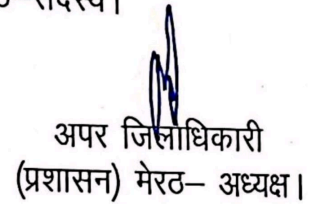 सदस्य।
अपर जिलाधिकारी
(प्रशासन) मेरठ– अध्यक्ष।